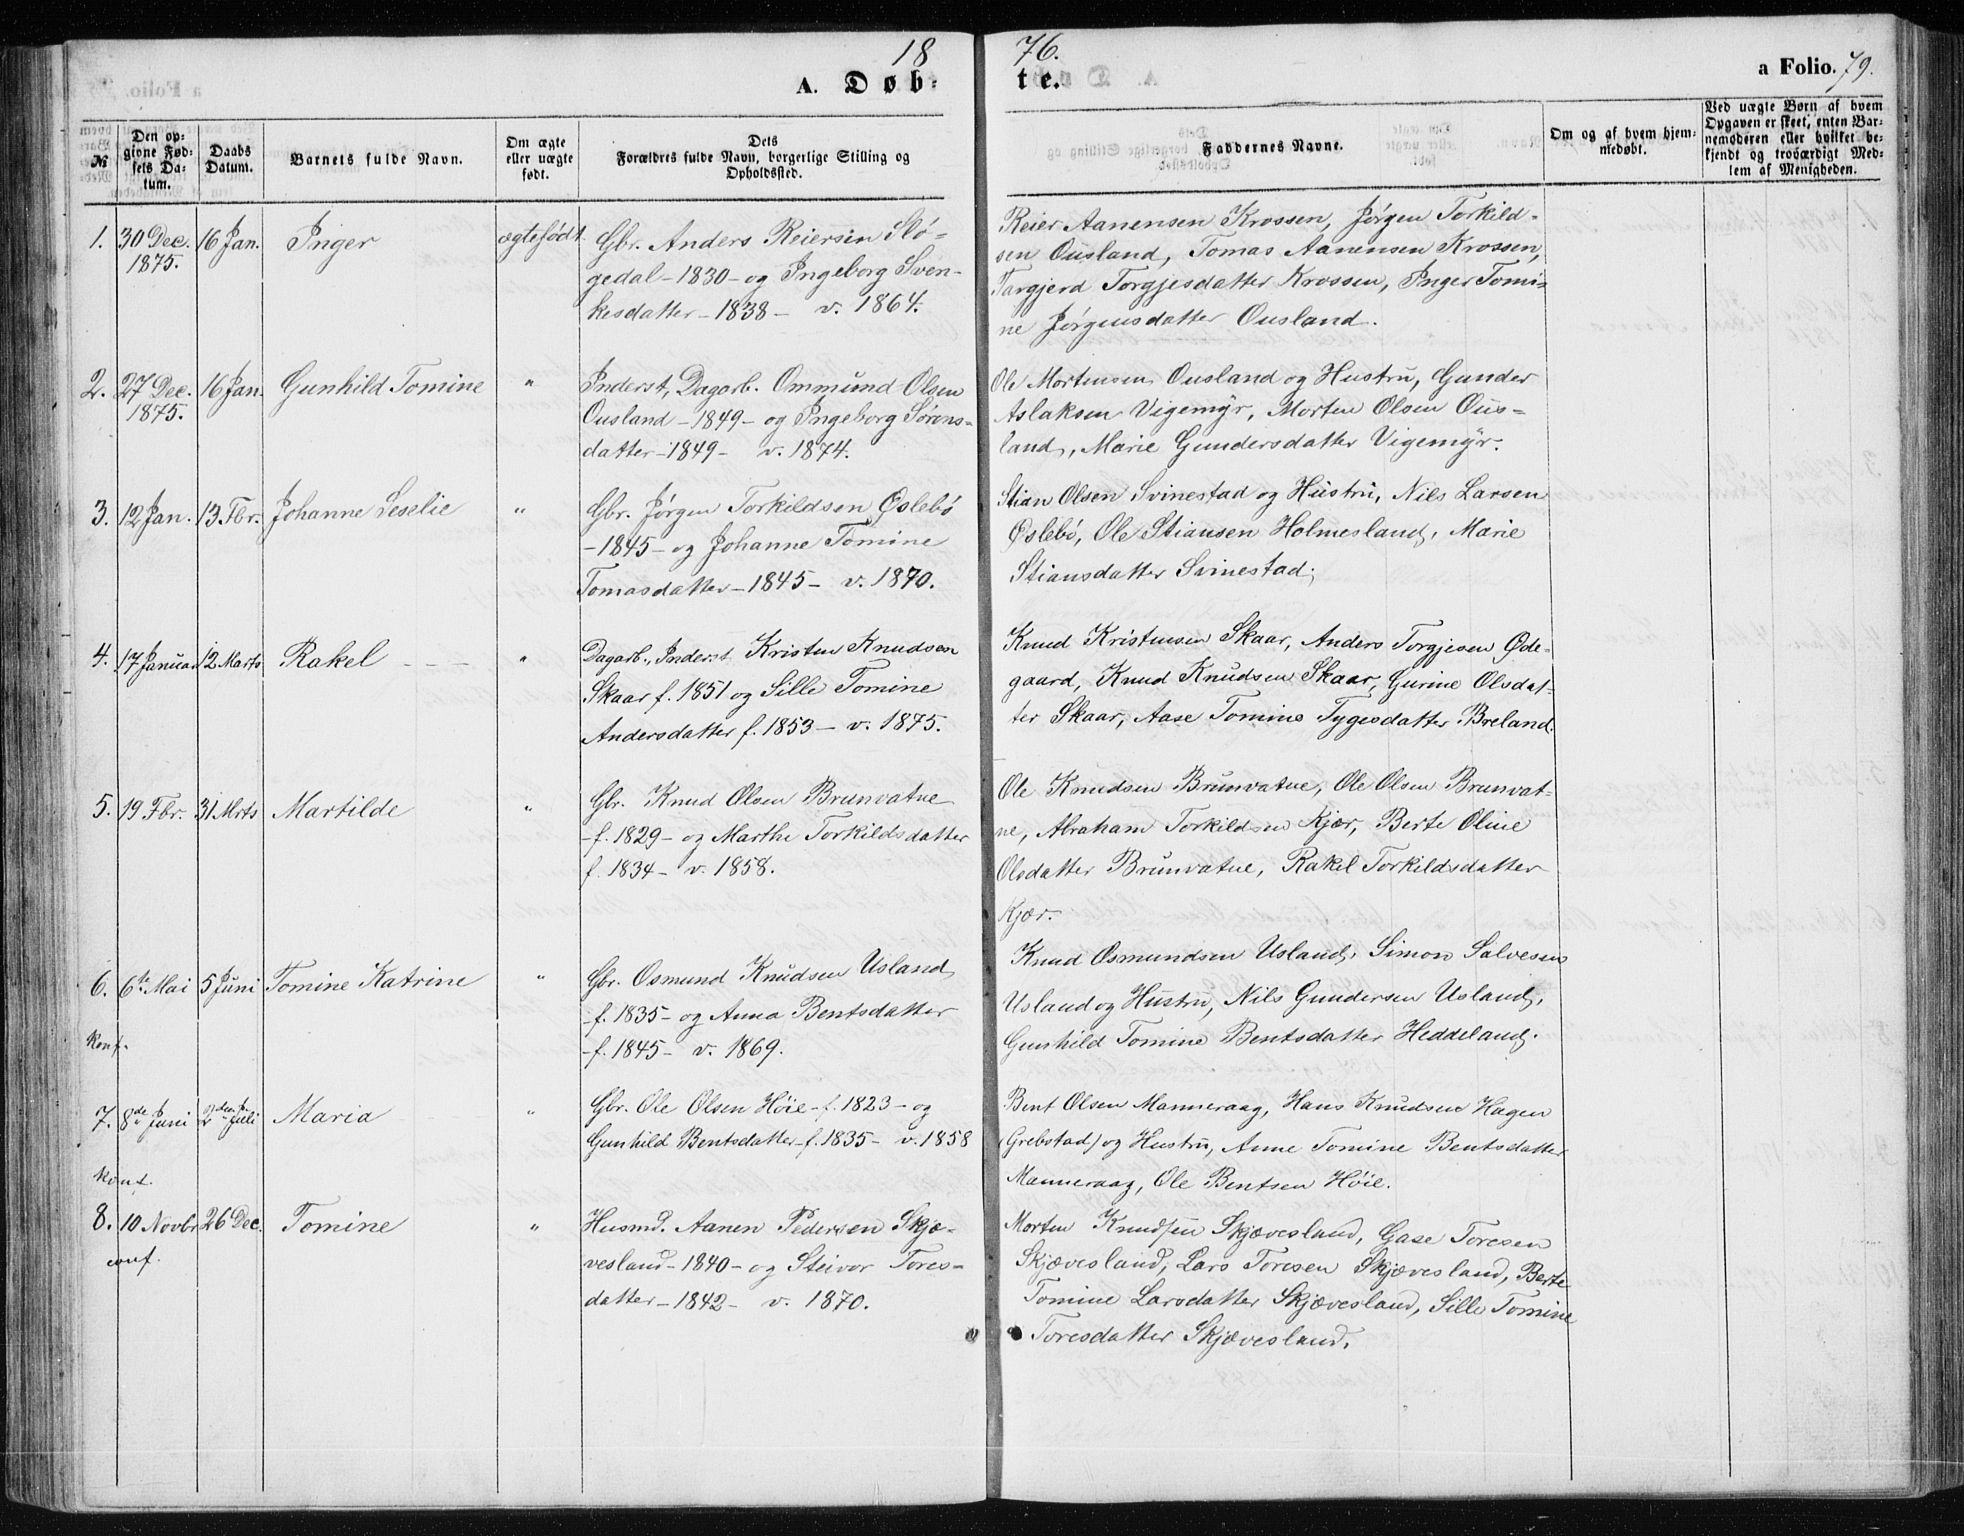 18
A. Døb-
№
Den op-
givne Fød-
sels Da-
tum.
Daabs
Datum.
Barnets fulde Navn.
Om ægte
eller uægte
født.
Dets
Forældres fulde Navn, borgerlige Stilling og
Opholdssted.
1. 30 Dec. 1875. 16 Jan. Inger ægtefødt Gbr. Anders Reiersen Slø-
gedal - 1830 - og Ingeborg Sven-
kesdatter - 1838 - v. 1864.
2. 27 Dec. 1875. 16 Jan. Gunhild Tomine " Inderst, Dagarb. Ommund Olsen
Ousland - 1849 - og Ingeborg Sørens-
datter - 1849 - v. 1874.
3. 12 Jan. 13 Fbr. Johanne Seselie " Gbr. Jørgen Torkildsen Øslebø
- 1845 - og Johanne Tomine
Tomasdatter - 1845 - v. 1870.
4. 17 Januar 12 Marts Rakel " Dagarb., Inderst Kristen Knudsen
Skaar f. 1851 og Sille Tomine
Andersdatter f. 1853 - v. 1875.
5. 19 Fbr. 31 Mrts Martilde " Gbr. Knud Olsen Brunvatne
- f. 1829 - og Marthe Torkildsdatter
f. 1834 - v. 1858.
6. 6te Mai 5 Juni Tomine Katrine " Gbr. Osmund Knudsen Usland
- f. 1835 - og Anna Bentsdatter
- f. 1845 - v. 1869.
Konf.
7. 8de Juni 2den Juli Maria " Gbr. Ole Olsen Høie - f. 1823 - og
Gunhild Bentsdatter - f. 1835 - v. 1858
Konf.
8. 10 Novbr 26 Dec. Tomine " Husmd. Aanen Pedersen Skjæ-
vesland - 1840 - og Steivor Tores-
datter - 1842 - v. 1870.
conf.
76.
te.
a Folio. 79.
Faddernes Navne.
Om og af hvem hjem-
medøbt.
Ved uægte Børn af hvem
Opgaven er skeet, enten Bar-
nemoderen eller hvilket be-
kjendt og troværdigt Med-
lem af Menigheden.
Reier Aanensen Krossen, Jørgen Torkild-
sen Ousland, Tomas Aanensen Krossen,
Targjerd Torgjesdatter Krossen, Inger Tomi-
ne Jørgensdatter Ousland.
Ole Mortensen Ousland og Hustru, Gunder
Aslaksen Vigemyr, Morten Olsen Ous-
land, Marie Gundersdatter Vigemyr.
Stian Olsen Svinestad og Hustru, Nils Larsen
Øslebø, Ole Stiansen Holmesland, Marie
Stiansdatter Svinestad.
Knud Kristensen Skaar, Anders Torgjesen Øde-
gaard, Knud Knudsen Skaar, Gurine Olsdat-
ter Skaar, Aase Tomine Tygesdatter Breland.
Ole Knudsen Brunvatne, Ole Olsen Brunvat-
ne, Abraham Torkildsen Kjær, Berte Oline
Olsdatter Brunvatne, Rakel Torkildsdatter
Kjær.
Knud Osmundsen Usland, Simon Salvesen
Usland og Hustru, Nils Gundersen Usland,
Gunhild Tomine Bentsdatter Heddeland.
Bent Olsen Manneraag, Hans Knudsen Hagen
(Grebstad) og Hustru, Anne Tomine Bentsdatter
Manneraag, Ole Bentsen Høie.
Morten Knudsen Skjævesland, Gase Toresen
Skjævesland, Lars Toresen Skjævesland, Berte
Tomine Larsdatter Skjævesland, Sille Tomine
Toresdatter Skjævesland.